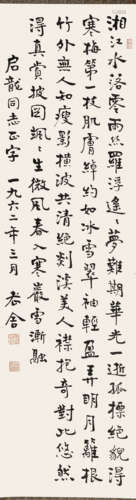 湘江水落零雨絲羅浮迢々夢難期華光一逝孤標絕貌得
寒梅第一枝肌膚綽約如冰雪翠袖輕盈弄明月籬根
竹外無人知瘦影橫波共清絕剡溪美人襟抱奇對此悠然
得真賞披圖颯々生微風春入寒巖雪漸融
启龍同志正字 一九六二年三月 老舍